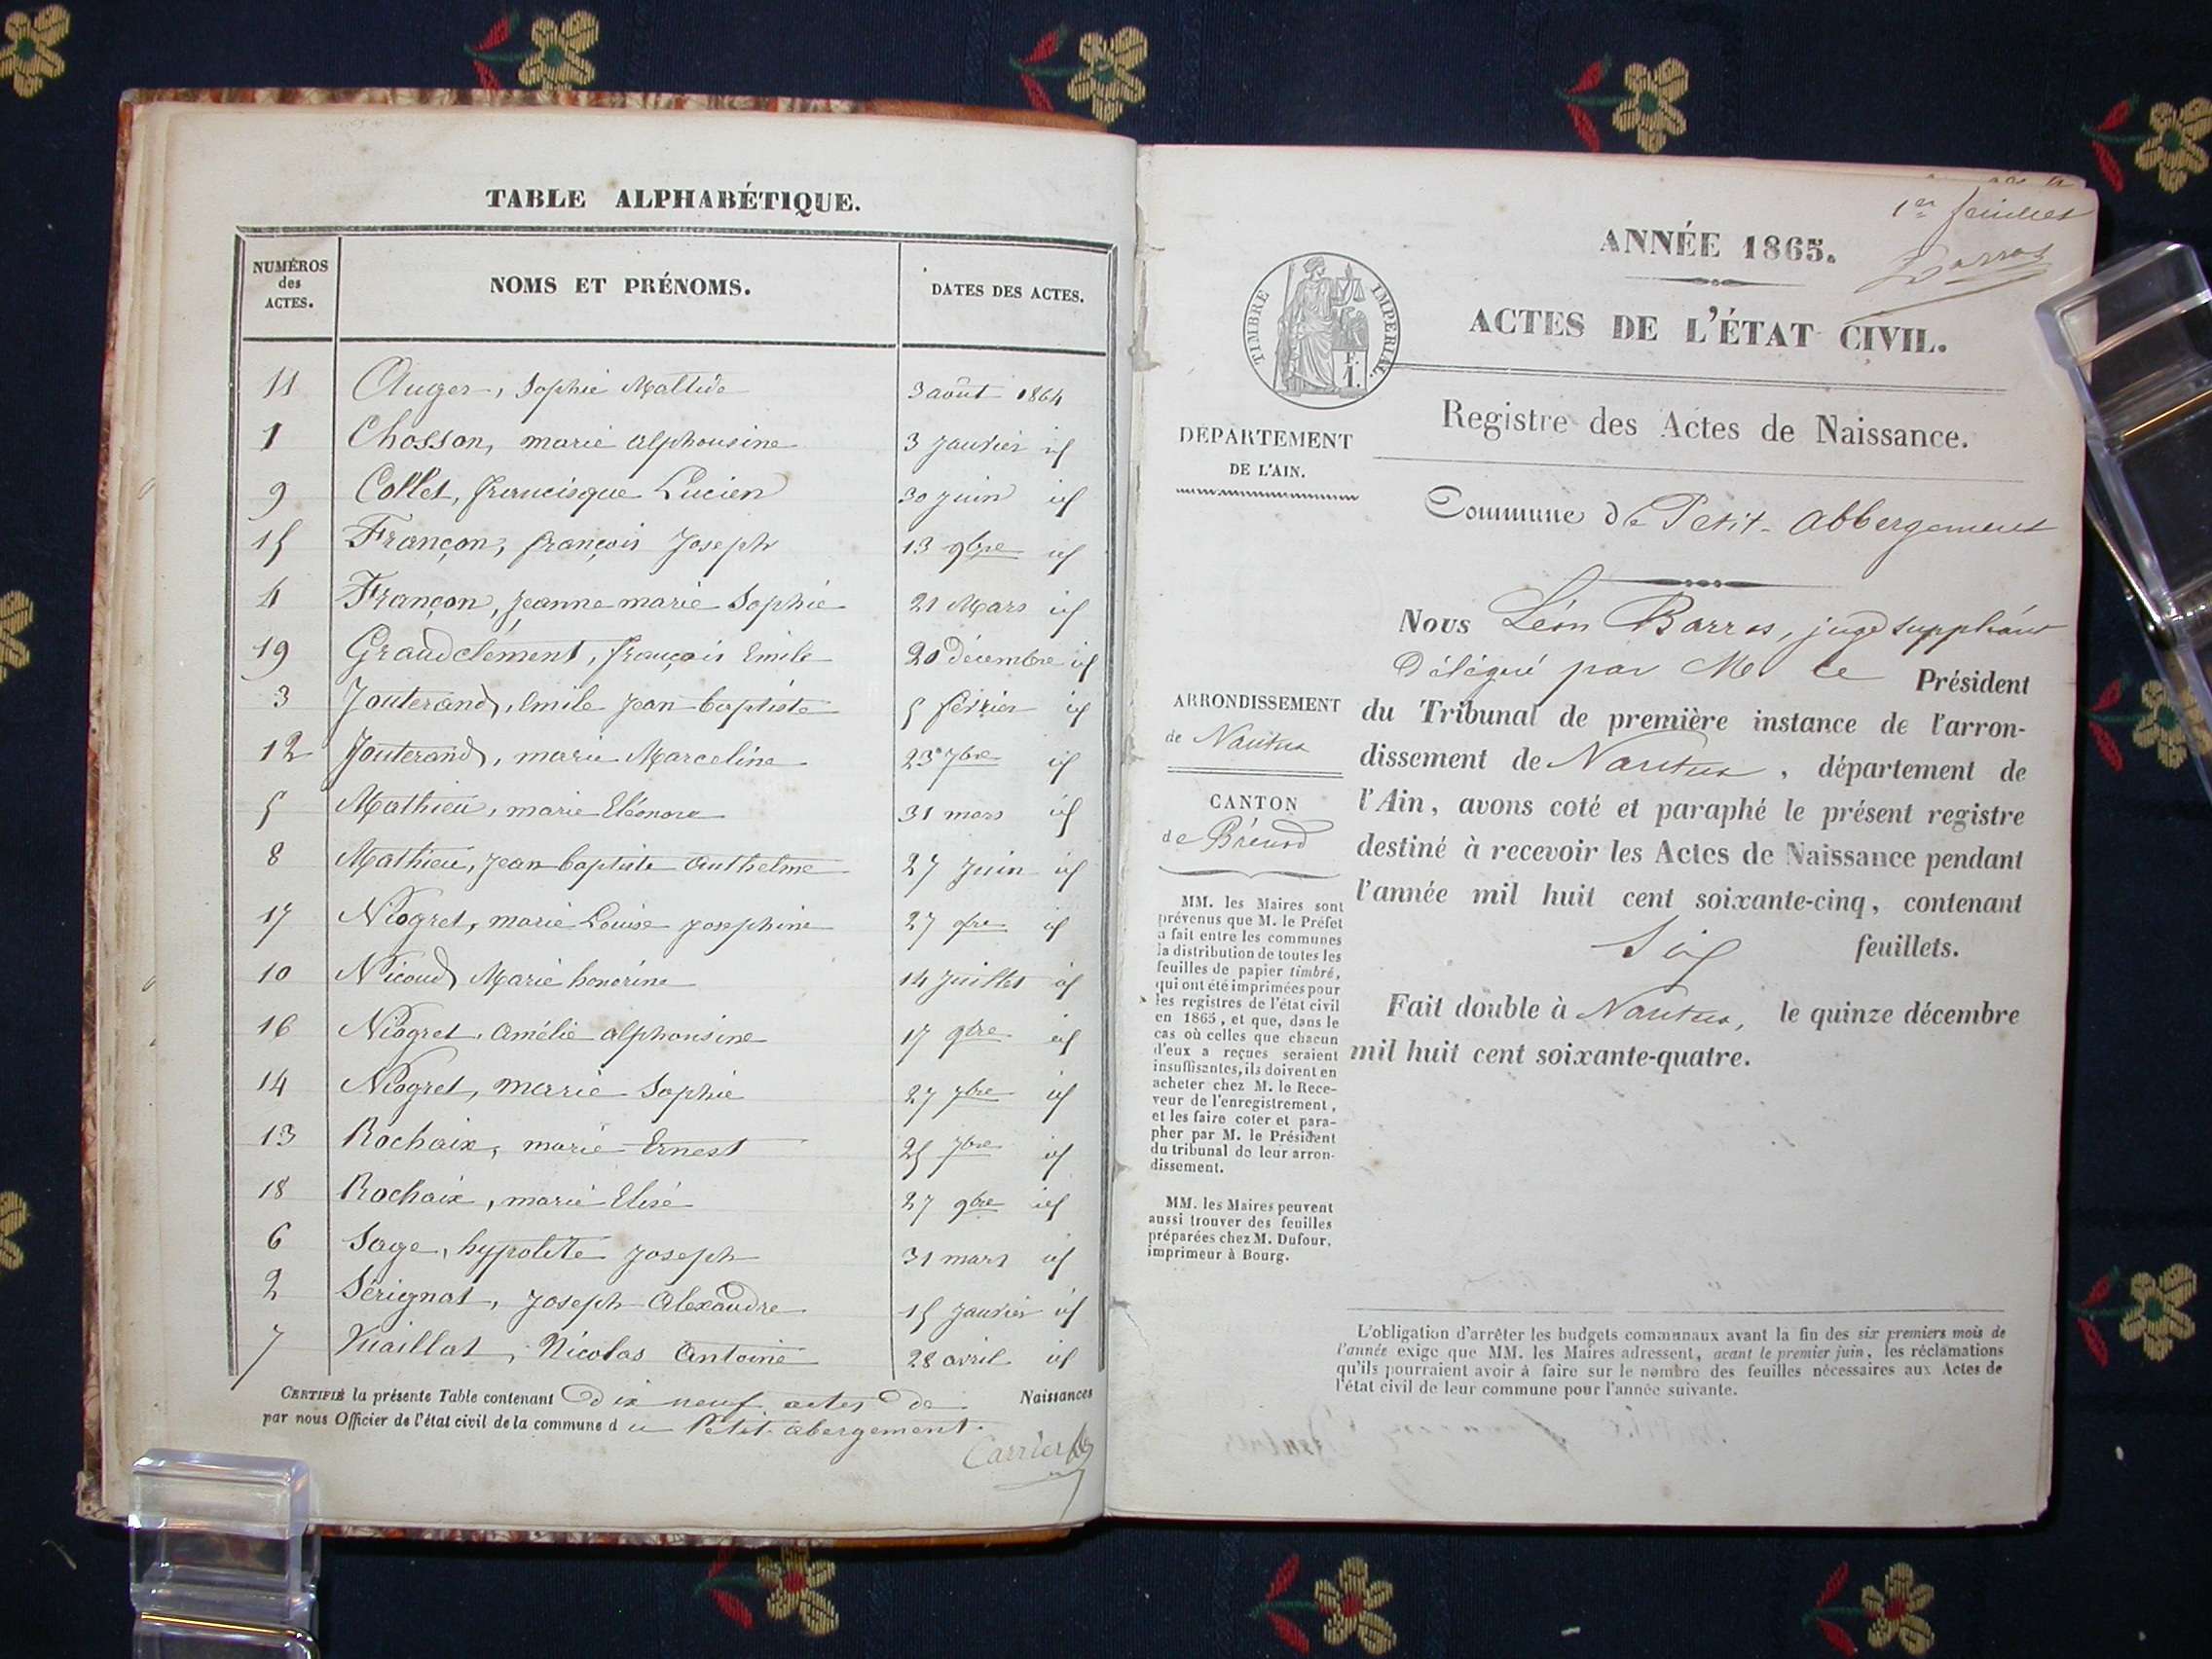 TABLE ALPHABÉTIQUE.
NUMÉROS des ACTES.
NOMS ET PRÉNOMS.
DATES DES ACTES.
11 Auger, Sophie Maltide 3 août 1864
1 Chosson, marie alphonsine 3 janvier id
9 Collet, francisque Lucien 30 juin id
15 Françon, françois Joseph 13 9bre id
4 Françon, jeanne marie Sophie 21 Mars id
19 Grandclément, françois Emile 20 décembre id
3 Jouterand, Emile jean baptiste 5 février id
12 Jouterand, marie Marceline 23 7bre id
5 Mathieu, marie Eléonore 31 mars id
8 Mathieu, jean baptiste anthelme 27 juin id
17 Niogret, marie Louise josephine 27 9bre id
10 Nicoud Marie honorine 14 juillet id
16 Niogret, amélie alphonsine 17 9bre id
14 Niogret, marie Sophie 27 7bre id
13 Rochaix, marie Ernest 25 7bre id
18 Rochaix, marie Elisé 27 9bre id
6 Sage, hypolite joseph 31 mars id
2 Sérignat, joseph Alexandre 15 janvier id
7 Vuaillat, Nicolas Antoine 28 avril id
CERTIFIÉ la présente Table contenant dix neuf actes de Naissances
par nous Officier de l'état civil de la commune du Petit abergement.
Carrier
1er feuillet
Barros
ANNÉE 1865.
TIMBRE IMPÉRIAL.
F. 1.
ACTES DE L'ÉTAT CIVIL.
Registre des Actes de Naissance.
DÉPARTEMENT
DE L'AIN.
Commune de Petit-Abbergement
Nous Léon Barros, juge suppléant
Délégué par M le Président
du Tribunal de première instance de l'arron-
dissement de Nantua, département de
l'Ain, avons coté et paraphé le présent registre
destiné à recevoir les Actes de Naissance pendant
l'année mil huit cent soixante-cinq, contenant
Six feuillets.
Fait double à Nantua, le quinze décembre
mil huit cent soixante-quatre.
ARRONDISSEMENT
de Nantua
CANTON
de Brénod
MM. les Maires sont
prévenus que M. le Préfet
a fait entre les communes
la distribution de toutes les
feuilles de papier timbré,
qui ont été imprimées pour
les registres de l'état civil
en 1865, et que, dans le
cas où celles que chacun
d'eux a reçues seraient
insuffisantes, ils doivent en
acheter chez M. le Rece-
veur de l'enregistrement,
et les faire coter et para-
pher par M. le Président
du tribunal de leur arron-
dissement.
MM. les Maires peuvent
aussi trouver des feuilles
préparées chez M. Dufour,
imprimeur à Bourg.
L'obligation d'arrêter les budgets communaux avant la fin des six premiers mois de
l'année exige que MM. les Maires adressent, avant le premier juin, les réclamations
qu'ils pourraient avoir à faire sur le nombre des feuilles nécessaires aux Actes de
l'état civil de leur commune pour l'année suivante.